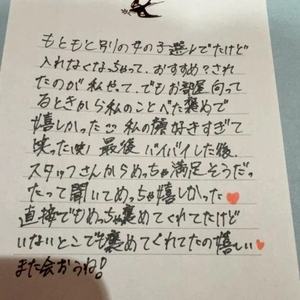 もともと別の女の子選んでたけど
入れなくなっちゃって、おすすめ?され
たのが私やって、でもお部屋向って
るときから私のことべた褒めで
嬉しかった 私の顔好きすぎて
笑った(笑) 最後バイバイした後、
スタッフさんからめっちゃ満足そうだっ
たって聞いてめっちゃ嬉しかった
直接でもめっちゃ褒めてくれてたけど
いないとこでも褒めてくれてたの嬉しい
また会おうね!